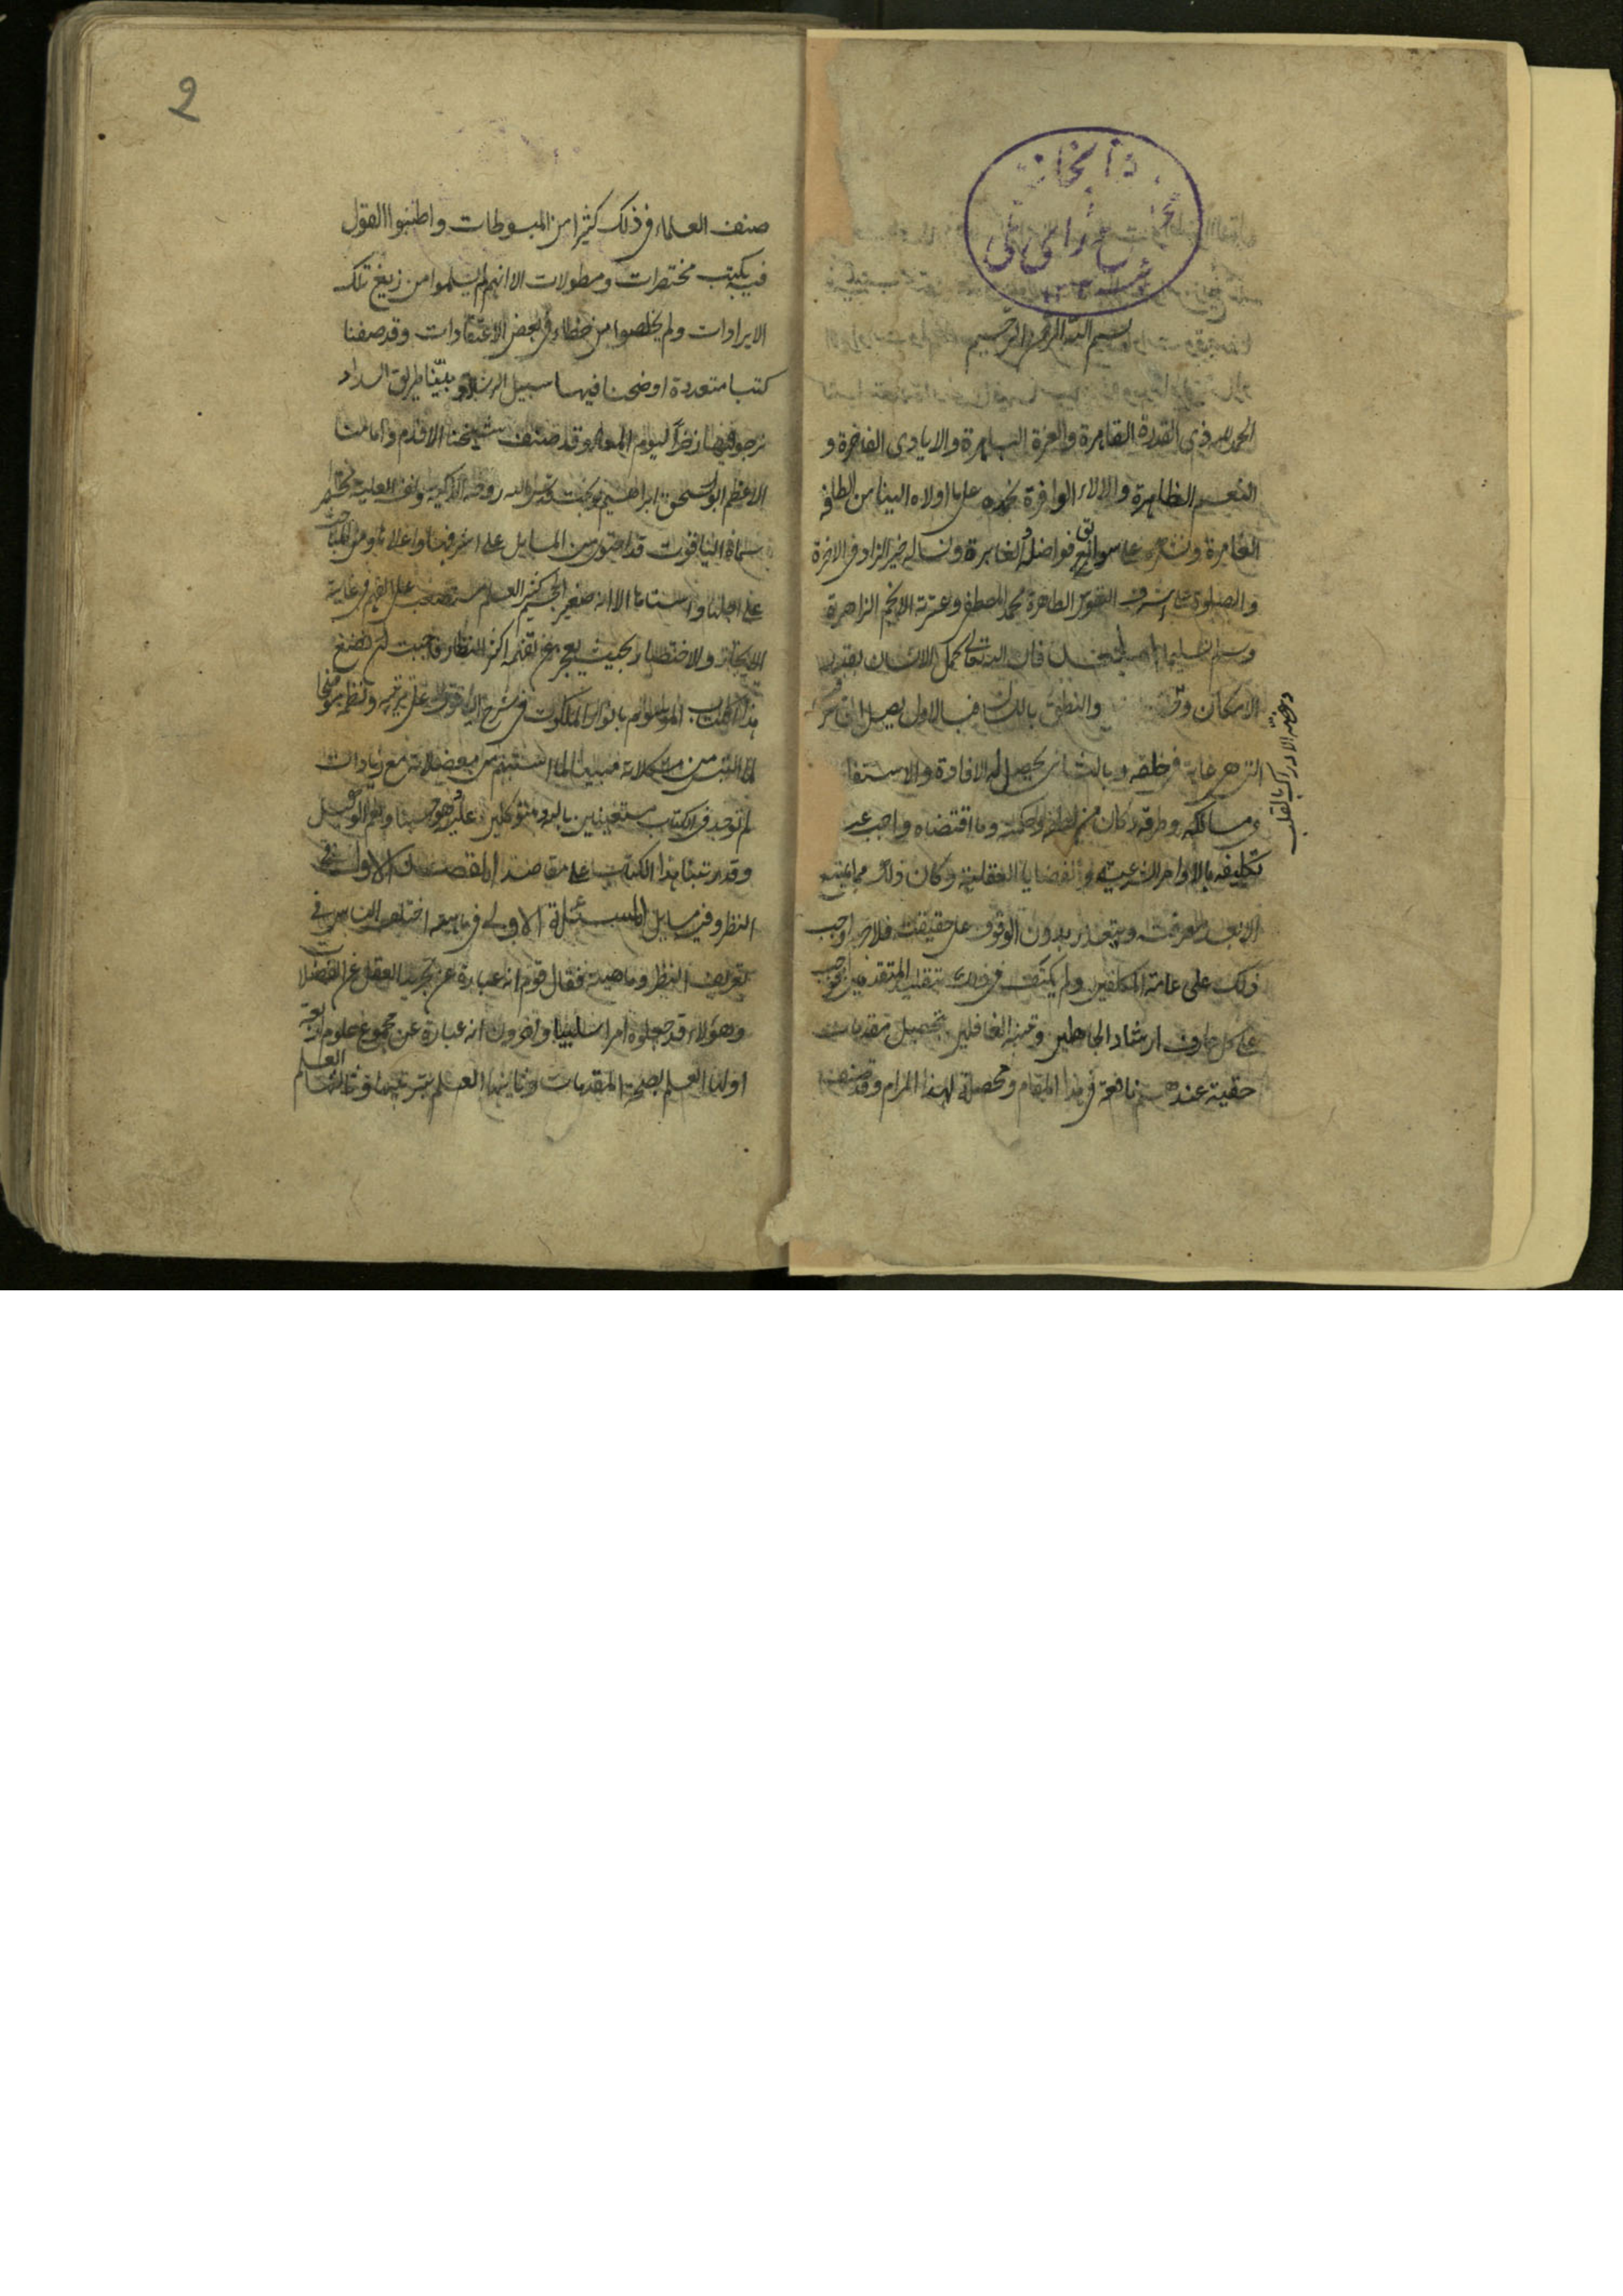 بسم الله الرحمن الرحيم
الحمد لله ذى القدرة القاهرة والعزة الباهرة والايادى الفاخرة و
النعم الظاهرة والالاء الوافرة نحمده على ما اولاه الينا من الطافه
الغامرة ونشكره على سوابق فواضله الغابرة ونساله خير الزاد فى الاخرة
والصلوة على اشرف النفوس الطاهرة محمد المصطفى وعترته الانجم الزاهرة
وسلم تسليما اما بعد فان الله تعالى كمل الانسان بقدر
الامكان وفق والنطق باللسان فبالاول يصل الى
التى هى غاية فى خلقه وبالثانى يحصل له الافادة والاستفا
ومسالكه وطرقه وكان من لطفه وحكمته وما اقتضاه واجب
تكليفه بالاوامر الشرعية والقضايا العقلية وكان ذلك مما يمتنع
الا بعد معرفته ويتعذر بدون الوقوف على حقيقته فلا جرم اوجب
ذلك على عامة المكلفين ولم يكتف فى ذلك بتقليد المتقدمين واوجب
على كل عارف ارشاد الجاهلين وتنبيه الغافلين بتحصيل مقدمات
حقية عندهم نافعة فى هذا المقام ومحصلة لهذا المرام وقد صنف
وهبة الادراك بالقلب
2
صنف العلماء فى ذلك كثيرا من المبسوطات واطنبوا القول
فيه بكتب مختصرات ومطولات الا انهم لم يسلموا من زيغ تلك
الايرادات ولم يخلصوا من خطاء فى بعض الاعتقادات وقد صفنا
كتبا متعددة اوضحنا فيها سبيل الرشاد وبينا طريق السداد
نرجو فيها زخرا ليوم المعاد وقد صنف شيخنا الاقدم وامامنا
الاعظم ابو اسحق ابراهيم بن نوبخت قدس الله روحه الزكية ونفسه العلية مختصرا
سماه الياقوت قد احتوى من المسايل على اشرفها واعلاها ومن المباحث
على اجلها واسناها الا انه صغير الحجم كثير العلم مستصعب على الفهم فى غاية
الايجاز والاختصار بحيث يعجز عن تفهمه اكثر النظار فاحببت ان نضع
هذا الكتاب الموسوم بانوار الملكوت فى شرح الياقوت على ترتيبه ونظمه موضحا
لما التبس من مشكلاته مبينا لما استبهم من معضلاته مع زيادات
لم توجد فى الكتاب مستعينين بالله ومتوكلين عليه وهو حسبنا ونعم الوكيل
وقد رتبنا هذا الكتاب على مقاصد المقصد الاول فى
النظر وفيه مسايل المسئلة الاولى فى ماهيته اختلف الناس فى
تعريف النظر وماهيته فقال قوم انه عبارة عن تجريد العقل عن الغفلات
وهؤلاء قد جعلوه امرا سلبيا واخرون انه عبارة عن مجموع علوم اربعة
اولها العلم بصحة المقدمات وثانيها العلم بترتيبها وثالثها العلم